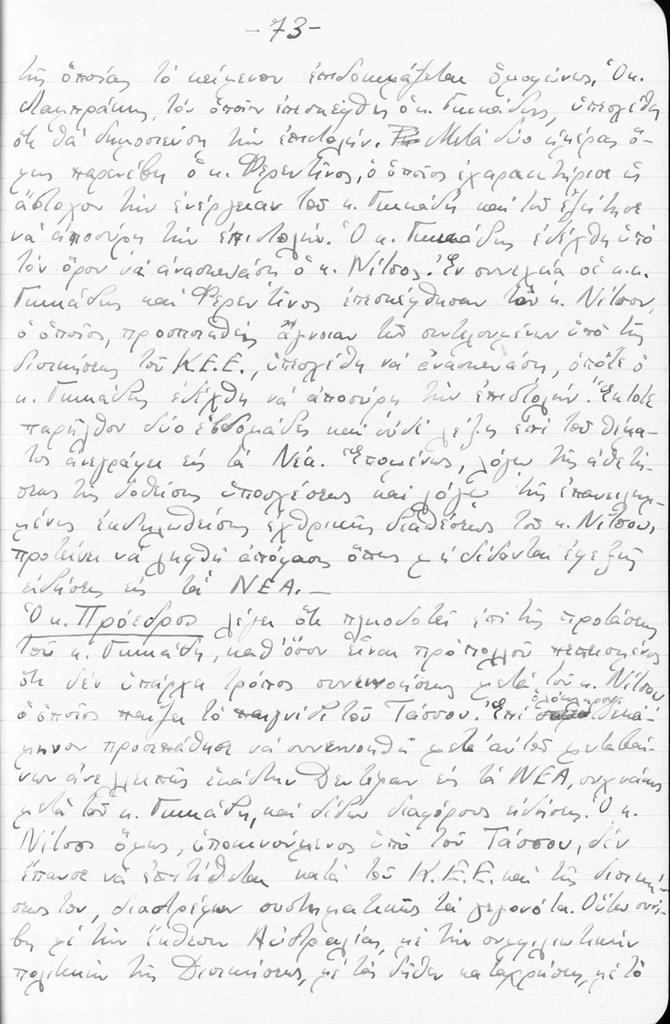 -73-
τῆς ὁποίας τὸ κείμενον ἐπιδοκιμάζεται ὁμοφώνως. Ὁ κ.
Λαμπράκης, τὸν ὁποῖον ἐπεσκέφθη ὁ κ. Γκικάδης, ὑπεσχέθη
ὅτι θὰ δημοσιεύσῃ τὴν ἐπιστολήν. Μετὰ δύο ἡμέρας ὅ-
μως παρενέβη ὁ κ. Φερεντῖνος, ὁ ὁποῖος ἐχαρακτήρισε ὡς
ἄστοχον τὴν ἐνέργειαν τοῦ κ. Γκικάδη καὶ τοῦ ἐζήτησε
νὰ ἀποσύρῃ τὴν ἐπιστολήν. Ὁ κ. Γκικάδης ἐδέχθη ὑπὸ
τὸν ὅρον νὰ ἀνασκευάσῃ ὁ κ. Νίτσος. Ἐν συνεχείᾳ οἱ κ.κ.
Γκικάδης καὶ Φερεντῖνος ἐπεσκέφθησαν τὸν κ. Νίτσον,
ὁ ὁποῖος, προσποιηθεὶς ἄγνοιαν τῶν συντελουμένων ὑπὸ τῆς
διοικήσεως τοῦ Κ.Ε.Ε., ὑπεσχέθη νὰ ἀνασκευάσῃ, ὁπότε ὁ
κ. Γκικάδης ἐδέχθη νὰ ἀποσύρῃ τὴν ἐπιστολήν. Ἔκτοτε
παρῆλθον δύο ἑβδομάδες καὶ οὐδὲ λέξις ἐπὶ τοῦ θέμα-
τος ἀνεγράφη εἰς τὰ Νέα. Ἑπομένως, λόγῳ τῆς ἀθετή-
σεως τῆς δοθείσης ὑποσχέσεως καὶ λόγῳ τῆς ἐπανειλημ-
μένως ἐκδηλωθείσης ἐχθρικῆς διαθέσεως τοῦ κ. Νίτσου,
προτείνει νὰ ληφθῇ ἀπόφασις ὅπως μὴ δίδονται ἐφεξῆς
εἰδήσεις εἰς τὰ ΝΕΑ.—
Ὁ κ. Πρόεδρος λέγει ὅτι πλειοδοτεῖ ἐπὶ τῆς προτάσεως
τοῦ κ. Γκικάδη, καθ' ὅσον εἶναι πρὸ πολλοῦ πεπεισμένος
ὅτι δὲν ὑπάρχει τρόπος συνεννοήσεως μετὰ τοῦ κ. Νίτσου
ὁ ὁποῖος παίζει τὸ παιγνίδι τοῦ Τάσσου. Ἐπὶ ὁλόκληρον δεκά-
μηνον προσεπάθησε νὰ συνεννοηθῇ μετ' αὐτοῦ μεταβαί-
νων ἀνελλειπῶς ἑκάστην Δευτέραν εἰς τὰ ΝΕΑ, συχνάκις
μετὰ τοῦ κ. Γκικάδη, καὶ δίδων διαφόρους εἰδήσεις. Ὁ κ.
Νίτσος ὅμως, ὑποκινούμενος ὑπὸ τοῦ Τάσσου, δὲν
ἔπαυσε νὰ ἐπιτίθεται κατὰ τοῦ Κ.Ε.Ε. καὶ τῆς διοικήσεως
του, διαστρέφων συστηματικῶς τὰ γεγονότα. Οὕτω συνέ-
βη μὲ τὴν ἔκθεσιν Αὐστραλίας, μὲ τὴν συμφιλιωτικὴν
πολιτικὴν τῆς Διοικήσεως, μὲ τὰς δῆθεν καταχρήσεις, μὲ τὸ